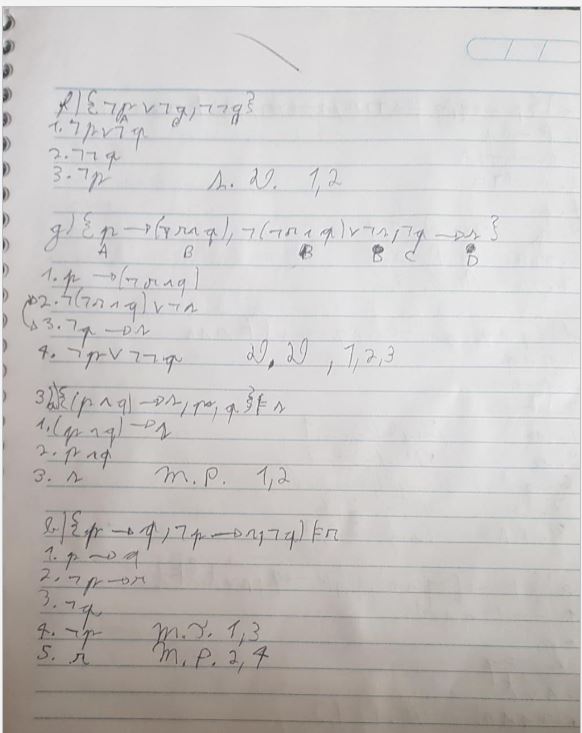 f) {¬p ∨ ¬q, ¬¬q}
A B B
1. ¬p ∨ ¬q
2. ¬¬q
3. ¬p S. D. 1,2
g) {p → (¬r ∧ q), ¬(¬r ∧ q) ∨ ¬s, ¬q → s}
A B B B C D
1. p → (¬r ∧ q)
2. ¬(¬r ∧ q) ∨ ¬s
3. ¬q → s
4. ¬p ∨ ¬¬q D. D, 1,2,3
3) {(p ∧ q) → s, p, q} ⊨ s
1. (p ∧ q) → s
2. p ∧ q
3. s M. P. 1,2
b) {p → q, ¬p → r, ¬q} ⊨ r
1. p → q
2. ¬p → r
3. ¬q
4. ¬p M. T. 1,3
5. r M. P. 2,4